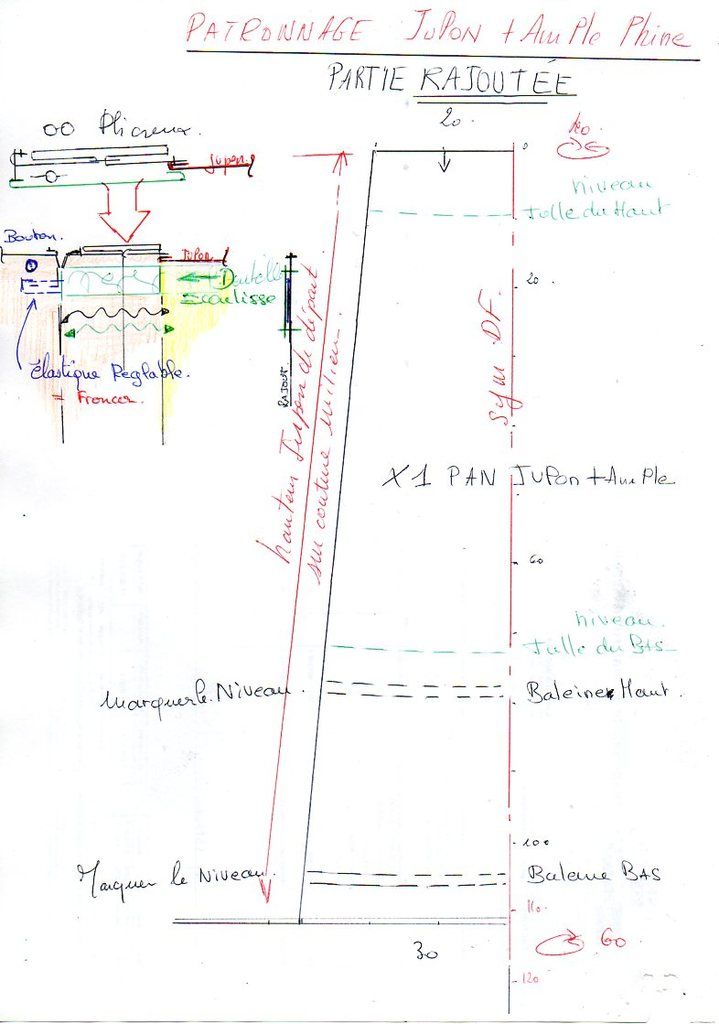 PATRONNAGE JUPON + AmPle Phine
PARTIE RAJOUTÉE
20
0
40
niveau
Tulle du Haut
Pli creux.
Jupon
Bouton.
Jupon
Dentelle
coulisse
Élastique Reglable.
= Froncer.
RAJOUT
20
hauteur Jupon de départ
sur couture milieu.
Sym DF.
X1 PAN JUPon + AmPle
60
niveau
Tulle du BAS
Marquer le Niveau.
Baleine Haut.
100
Marquer le Niveau.
Baleine BAS
110
30
60
120